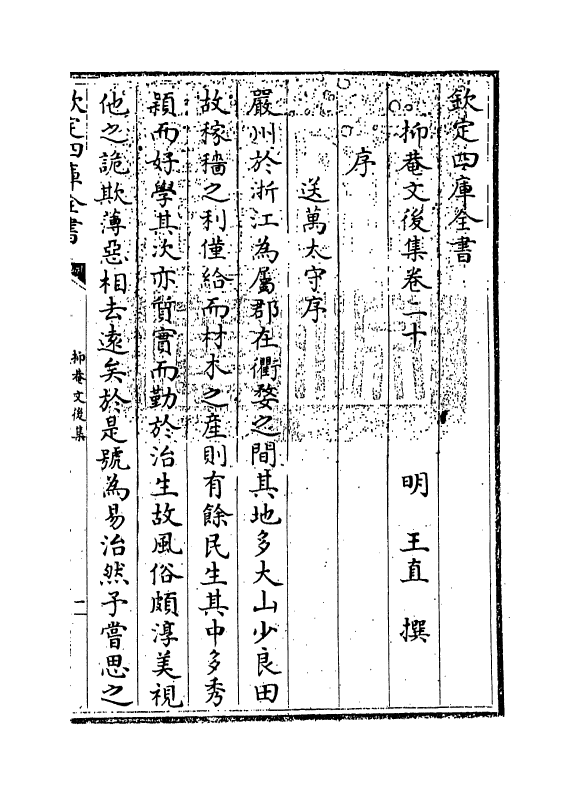 欽定四庫全書
抑菴文後集卷二十　明　王直　撰
序
送萬太守序
嚴州於浙江為屬郡在衢婺之間其地多大山少良田
故稼穡之利僅給而材木之產則有餘民生其中多秀
穎而好學其次亦質實而勤於治生故風俗頗淳美視
他之詭欺薄惡相去遠矣於是號為易治然予嘗思之
欽定四庫全書　抑菴文後集　一